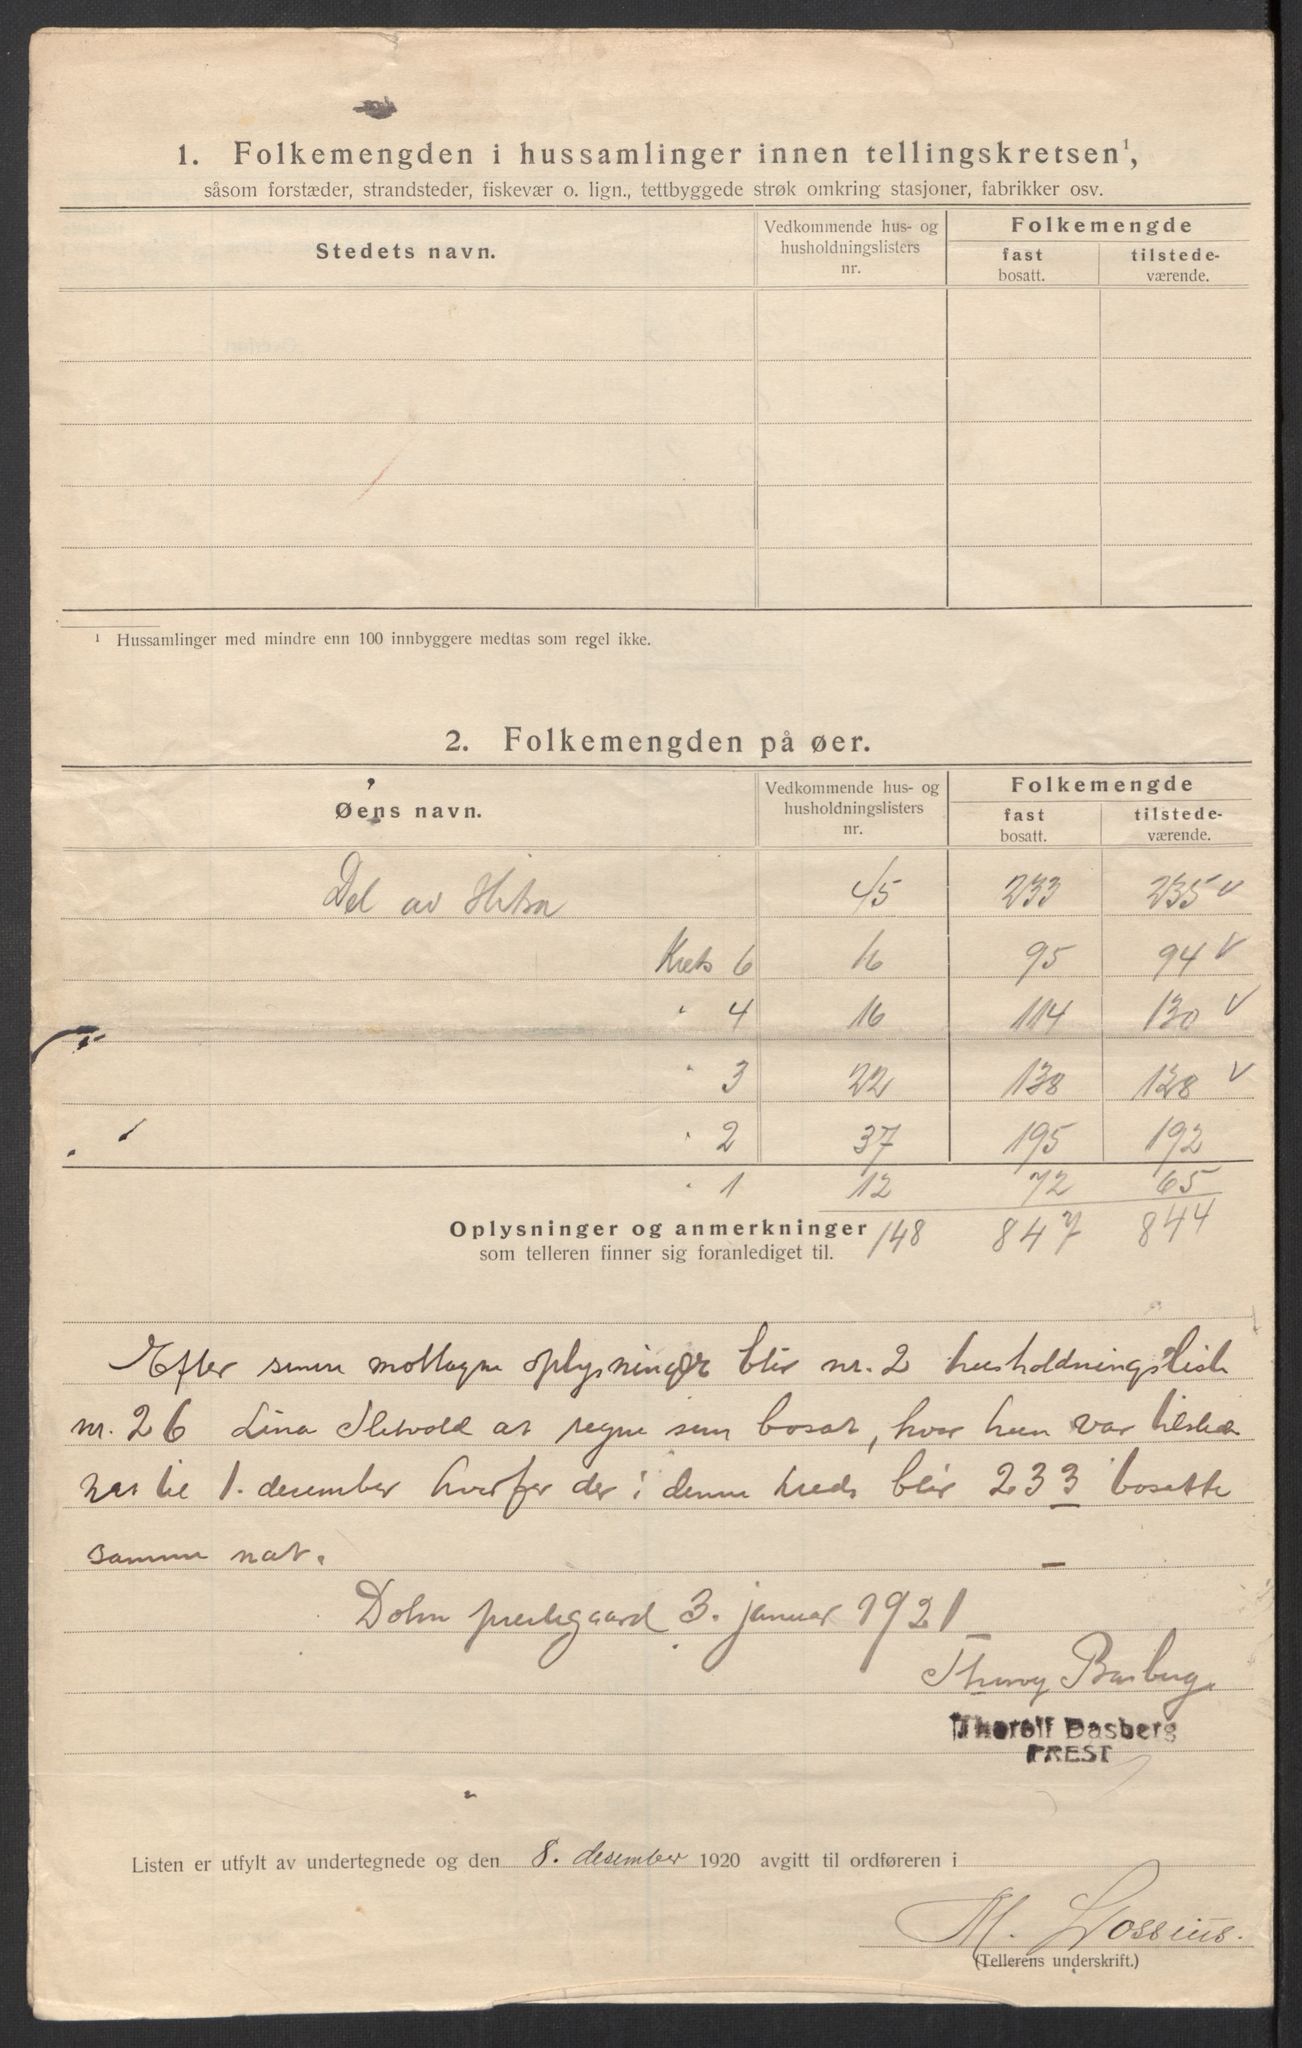 1. Folkemengden i hussamlinger innen tellingskretsen¹,
såsom forstæder, strandsteder, fiskevær o. lign., tettbyggede strøk omkring stasjoner, fabrikker osv.
Stedets navn.
Vedkommende hus- og husholdningslisters nr.
Folkemengde
fast bosatt.
tilstede-værende.
¹ Hussamlinger med mindre enn 100 innbyggere medtas som regel ikke.
2. Folkemengden på øer.
Øens navn.
Vedkommende hus- og husholdningslisters nr.
Folkemengde
fast bosatt.
tilstede-værende.
Del av Hitra 45 233 235 v
Krets 6 16 95 94 v
" 4 16 114 130 v
" 3 22 138 128 v
" 2 37 195 192
" 1 12 72 65
148 847 844
Oplysninger og anmerkninger
som telleren finner sig foranlediget til.
Efter mottagne oplysninger blir nr. 2 husholdningsliste
nr. 26 Lina at regne som bosat, hvor hun var
til 1. desember hvorfor der i denne kreds blir 233 bosatte
samme nat.
Dolm prestegaard 3. januar 1921
Thoralf Basberg
PREST
Listen er utfylt av undertegnede og den 8. desember 1920 avgitt til ordføreren i
M. Lossius.
(Tellerens underskrift.)